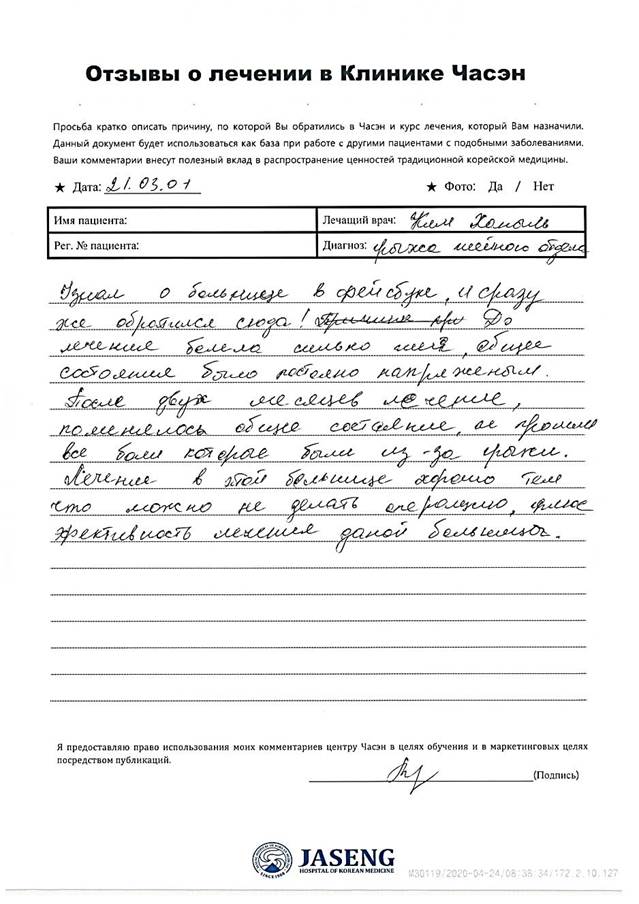 Отзывы о лечении в Клинике Часэн
Просьба кратко описать причину, по которой Вы обратились в Часэн и курс лечения, который Вам назначили.
Данный документ будет использоваться как база при работе с другими пациентами с подобными заболеваниями.
Ваши комментарии внесут полезный вклад в распространение ценностей традиционной корейской медицины.
★ Дата: 21.03.01 ★ Фото: Да / Нет
Имя пациента: Лечащий врач: Ким Ханыль
Рег. № пациента: Диагноз: грыжа шейного отдела
Узнал о больнице в фейсбуке, и сразу
же обротился сюда! До
лечения болела сильно шея, общее
состояния было постояно напряженым.
После двух месяцев лечение,
поменялось общие состаяние, и прошли
все боли которые были из-за грыжи.
Лечение в этой больнице хорошо тем
что можно не делать операцию, плюс
эфективность лечения даной больницы.
Я предоставляю право использования моих комментариев центру Часэн в целях обучения и в маркетинговых целях
посредством публикаций.
(Подпись)
JASENG
HOSPITAL OF KOREAN MEDICINE
SINCE 1988
M30119/2020-04-24/08:38:34/172.2.10.127